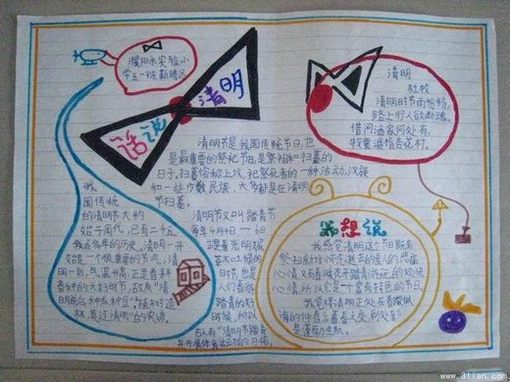 濮阳市实验小
学五一班
话说
清明
清明
杜牧
清明时节雨纷纷,
路上行人欲断魂。
借问酒家何处有,
牧童遥指杏花村。
清明节是我国传统节日,也
是最重要的祭祀节日,是祭祖和扫墓的
日子。扫墓俗称上坟,祀祭死者的一种活动。汉族
和一些少数民族,大多都是在清明
节扫墓。
我
国传统
的清明节大约
始于周代,已有二千五
百多年的历史。清明一开
始是一个很重要的节气,清
明一到,气温升高,正是春耕
春种的大好时节,故有"清
明前后种瓜种豆""植树造
林,莫过清明"的农谚。
清明节又叫踏青节
每年4月4日-6日
正是春光明媚
草木吐绿的
时节,也是
人们春游
踏青的好
时候,所以
古人有"清明节踏青
并开展体育活动的习俗。
我想说
我感觉清明这个节日既有
祭扫
心情又有春暖花开踏春游玩的欢快
心情,所以它是一个富有特色的节日。
我觉得清明正处在春暖
www.3lian.com